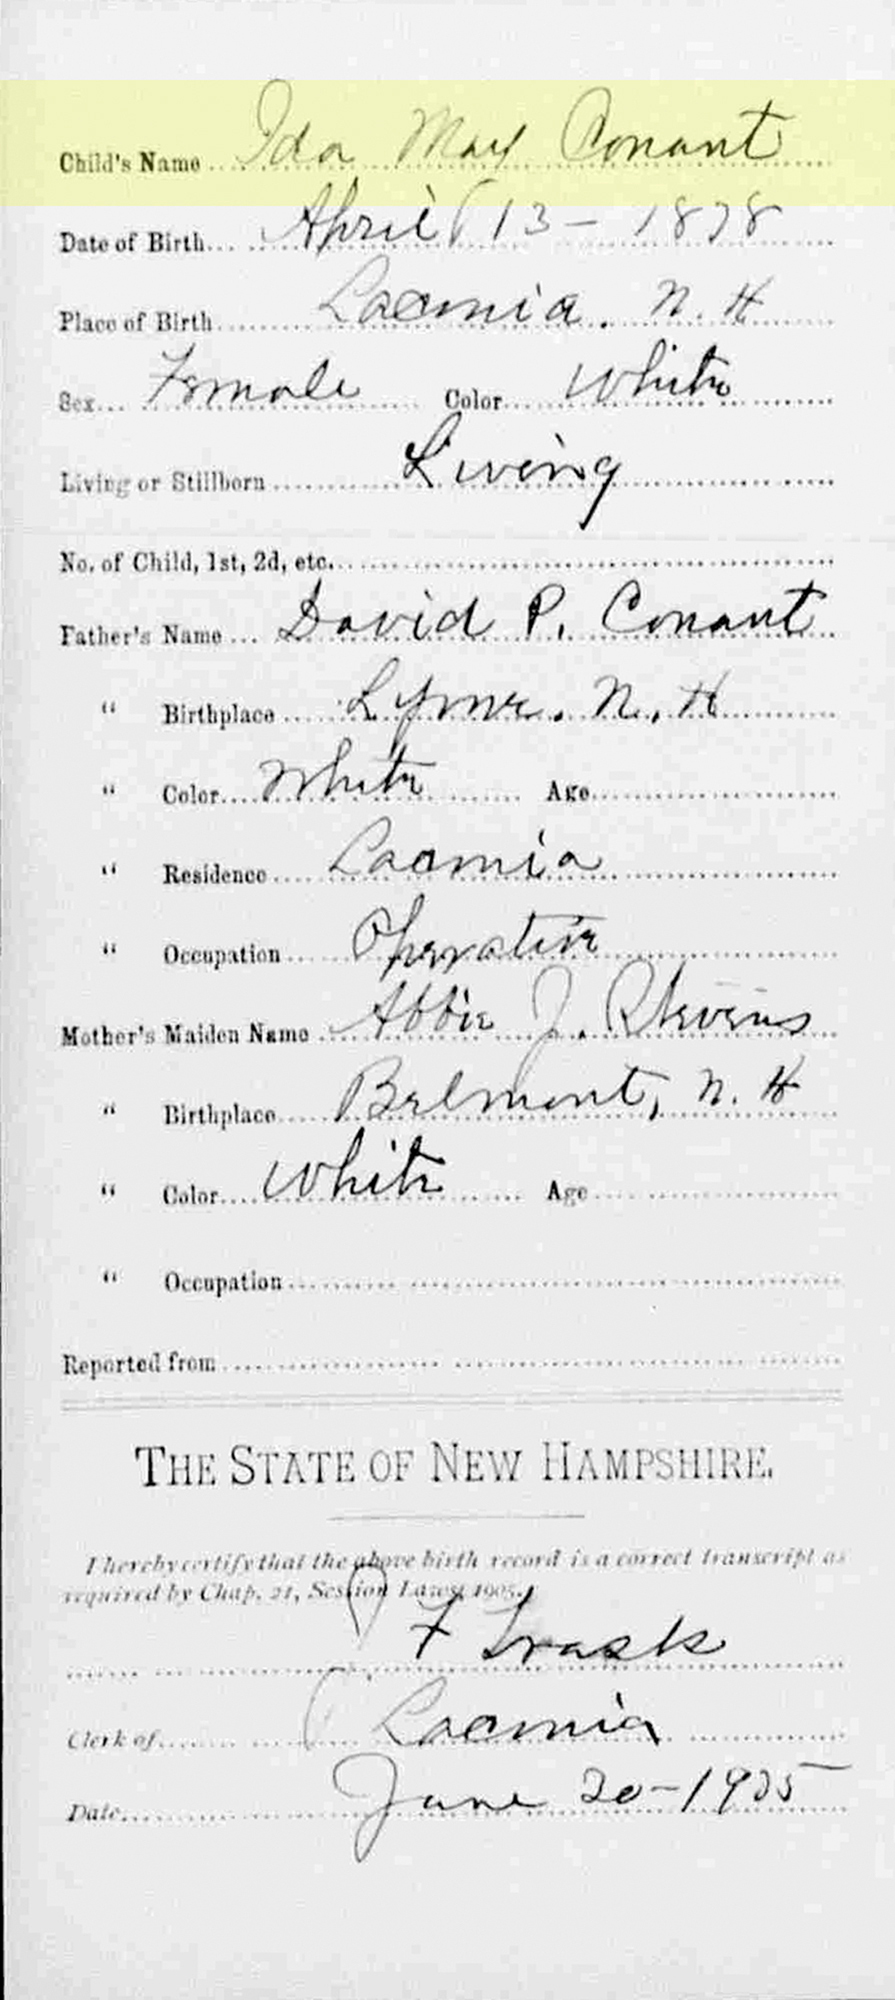 Child's Name Ida May Conant
Date of Birth April 13 - 1878
Place of Birth Laconia. N. H
Sex Female Color White
Living or Stillborn Living
No. of Child, 1st, 2d, etc.
Father's Name David P. Conant
" Birthplace Lyme. N. H
" Color White Age
" Residence Laconia
" Occupation Operative
Mother's Maiden Name Abbie J. Stevens
" Birthplace Belmont, N. H
" Color White Age
" Occupation
Reported from
THE STATE OF NEW HAMPSHIRE.
I hereby certify that the above birth record is a correct transcript as
required by Chap. 21, Session Laws, 1905.
Trask
Clerk of Laconia
Date June 20-1905